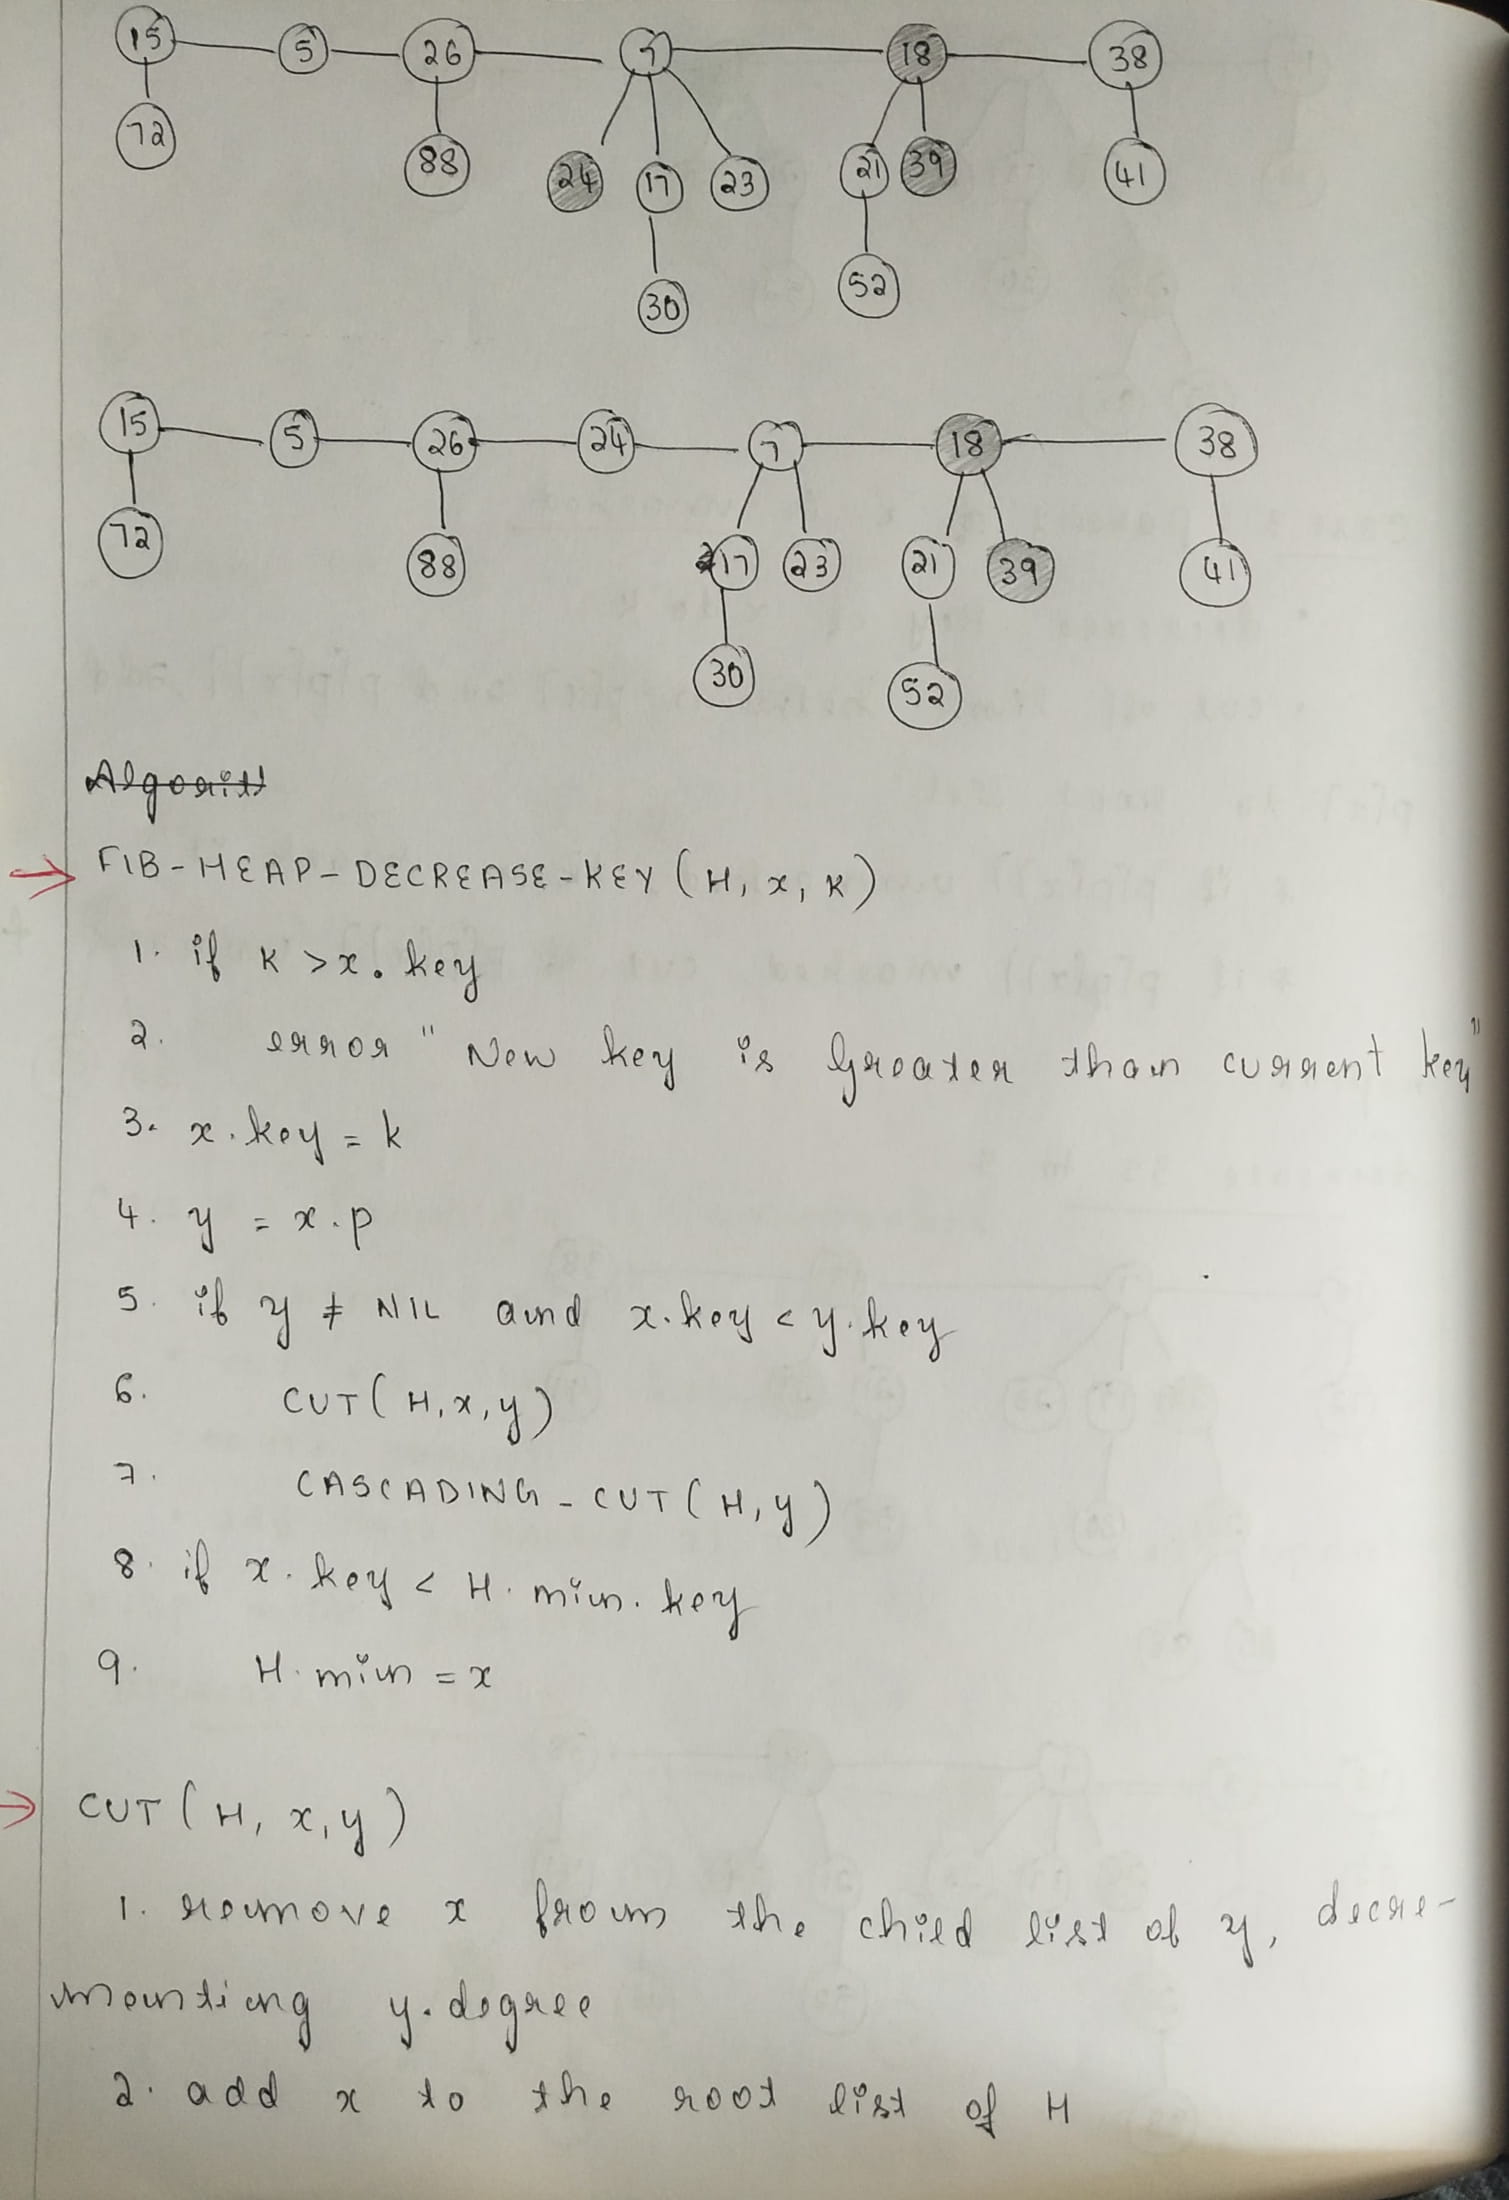 15 5 26 7 18 38
72 88 24 17 23 21 39 41
30 52
15 5 26 24 7 18 38
72 88 17 23 21 39 41
30 52
FIB-HEAP-DECREASE-KEY (H, x, K)
1. if K > x. key
2. error "New key is Greater than current key"
3. x. key = k
4. y = x.p
5. if y ≠ NIL and x.key < y.key
6. CUT(H,x,y)
7. CASCADING-CUT(H,y)
8. if x.key < H.min.key
9. H.min = x
CUT (H, x, y)
1. remove x from the child list of y, decre-
menting y.degree
2. add x to the root list of H